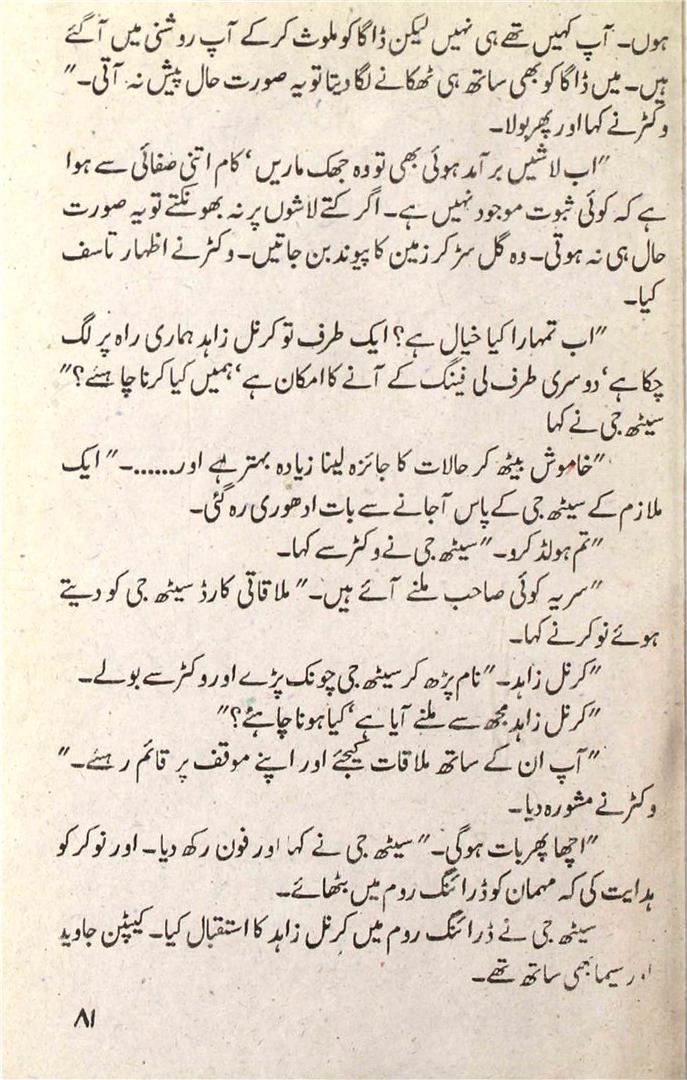 ہوں۔ آپ کہیں تھے ہی نہیں لیکن ڈاگا کو ملوث کرکے آپ روشنی میں آگئے
ہیں۔ میں ڈاگا کو بھی ساتھ ہی ٹھکانے لگا دیتا تو یہ صورت حال پیش نہ آتی۔"
وکٹر نے کہا اور پھر بولا۔
"اب لاشیں برآمد ہوئی بھی تو وہ جھک ماریں‘ کام اتنی صفائی سے ہوا
ہے کہ کوئی ثبوت موجود نہیں ہے۔ اگر کتے لاشوں پر نہ بھونکتے تو یہ صورت
حال ہی نہ ہوتی۔ وہ گل سڑ کر زمین کا پیوند بن جاتیں۔ وکٹر نے اظہار تاسف
کیا۔
"اب تمہارا کیا خیال ہے؟ ایک طرف تو کرنل زاہد ہماری راہ پر لگ
چکا ہے‘ دوسری طرف لی فینگ کے آنے کا امکان ہے‘ ہمیں کیا کرنا چاہئے؟"
سیٹھ جی نے کہا
"خاموش بیٹھ کر حالات کا جائزہ لینا زیادہ بہتر ہے اور......۔" ایک
ملازم کے سیٹھ جی کے پاس آجانے سے بات ادھوری رہ گئی۔
"تم ہولڈ کرو۔" سیٹھ جی نے وکٹر سے کہا۔
"سر یہ کوئی صاحب ملنے آئے ہیں۔" ملاقاتی کارڈ سیٹھ جی کو دیتے
ہوئے نوکر نے کہا۔
"کرنل زاہد۔" نام پڑھ کر سیٹھ جی چونک پڑے اور وکٹر سے بولے۔
"کرنل زاہد مجھ سے ملنے آیا ہے‘ کیا ہونا چاہئے؟"
"آپ ان کے ساتھ ملاقات کیجئے اور اپنے موقف پر قائم رہئے۔"
وکٹر نے مشورہ دیا۔
"اچھا پھر بات ہوگی۔" سیٹھ جی نے کہا اور فون رکھ دیا۔ اور نوکر کو
ہدایت کی کہ مہمان کو ڈرائنگ روم میں بٹھائے۔
سیٹھ جی نے ڈرائنگ روم میں کرنل زاہد کا استقبال کیا۔ کیپٹن جاوید
اور سیما بھی ساتھ تھے۔
۸۱